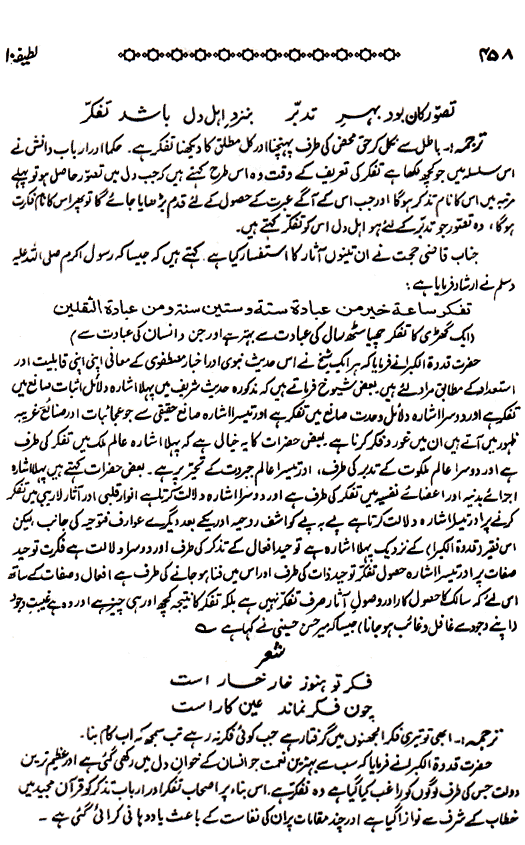 ۴۵۸ لطیفہ ۱۰
تصور کان بود بہر تدبر بنزد اہل دل باشد تفکر
ترجمہ:۔ باطل سے نکل کر حق محض کی طرف پہنچنا اور کل مطلق کا دیکھنا تفکر ہے۔ حکما اور ارباب دانش نے
اس سلسلہ میں جو کچھ لکھا ہے تفکر کی تعریف کے وقت وہ اس طرح کہتے ہیں کہ جب دل میں تصور حاصل ہو تو پہلے
مرتبہ میں اس کا نام تذکر ہوگا اور جب اس کے آگے عبرت کے حصول کے لئے قدم بڑھایا جائے گا تو پھر اس کا نام فکرت
ہوگا، وہ تصور جو تدبر کے لئے ہو اہل دل اس کو تفکر کہتے ہیں۔
جناب قاضی حجت نے ان تینوں آثار کا استفسار کیا ہے۔ کہتے ہیں کہ جیسا کہ رسول اکرم صلی اللہ علیہ
وسلم نے ارشاد فرمایا ہے:
تفکر ساعة خیر من عبادة ستة وستین سنة ومن عبادة الثقلین
(ایک گھڑی کا تفکر چھیاسٹھ سال کی عبادت سے بہتر ہے اور جن و انسان کی عبادت سے)
حضرت قدوۃ الکبرا نے فرمایا کہ ہر ایک شیخ نے اس حدیث نبوی اور اخبار مصطفوی کے معانی اپنی اپنی قابلیت اور
استعداد کے مطابق مراد لئے ہیں۔ بعض شیوخ فرماتے ہیں کہ مذکورہ حدیث شریف میں پہلا اشارہ دلائل اثبات صانع میں
تفکر ہے اور دوسرا اشارہ دلائل وحدت صانع میں تفکر ہے اور تیسرا اشارہ صانع حقیقی سے جو عجائبات اور صنائع غریبہ
ظہور میں آتے ہیں ان میں غور و فکر کرنا ہے۔ بعض حضرات کا یہ خیال ہے کہ پہلا اشارہ عالم ملک میں تفکر کی طرف
ہے اور دوسرا عالم ملکوت کے تدبر کی طرف، اور تیسرا عالم جبروت کے تحیر پر ہے۔ بعض حضرات کہتے ہیں پہلا اشارہ
اجزائے بدنیہ اور اعضائے نفسیہ میں تفکر کی طرف ہے اور دوسرا اشارہ دلالت کرتا ہے انوار قلبی اور آثار لاریبی میں تفکر
کرنے پر اور تیسرا اشارہ دلالت کرتا ہے پے بہ پے کواشف روحیہ اور یکے بعد دیگرے عوارف فتوحیہ کی جانب لیکن
اس فقیر (قدوۃ الکبرا) کے نزدیک پہلا اشارہ ہے توحید افعال کے تذکر کی طرف اور دوسرا دلالت ہے فکرت توحید
صفات پر اور تیسرا اشارہ حصول تفکر توحید ذات کی طرف اور اس میں فنا ہو جانے کی طرف ہے افعال و صفات کے ساتھ
اس لئے کہ سالک کا حصول کار اور وصول آثار صرف تفکر نہیں ہے بلکہ تفکر کا نتیجہ کچھ اور ہی چیز ہے اور وہ ہے غیبت وجود
(اپنے وجود سے غافل و غائب ہو جانا) جیسا کہ میر حسن حسینی نے کہا ہے
شعر
فکر تو ہنوز خار خسار است
چون فکر نماند عین کار است
ترجمہ:۔ ابھی تو تیری فکر الجھنوں میں گرفتار ہے جب کوئی فکر نہ رہے تب سمجھ کہ اب کام بنا۔
حضرت قدوۃ الکبرا نے فرمایا کہ سب سے بہترین نعمت جو انسان کے خوان دل میں رکھی گئی ہے اور عظیم ترین
دولت جس کی طرف لوگوں کو راغب کیا گیا ہے وہ تفکر ہے۔ اس بناء پر اصحاب تفکر اور ارباب تذکر کو قرآن مجید میں
خطاب کے شرف سے نوازا گیا ہے اور چند مقامات پر ان کی نفاست کے باعث یاد دہانی کرائی گئی ہے۔